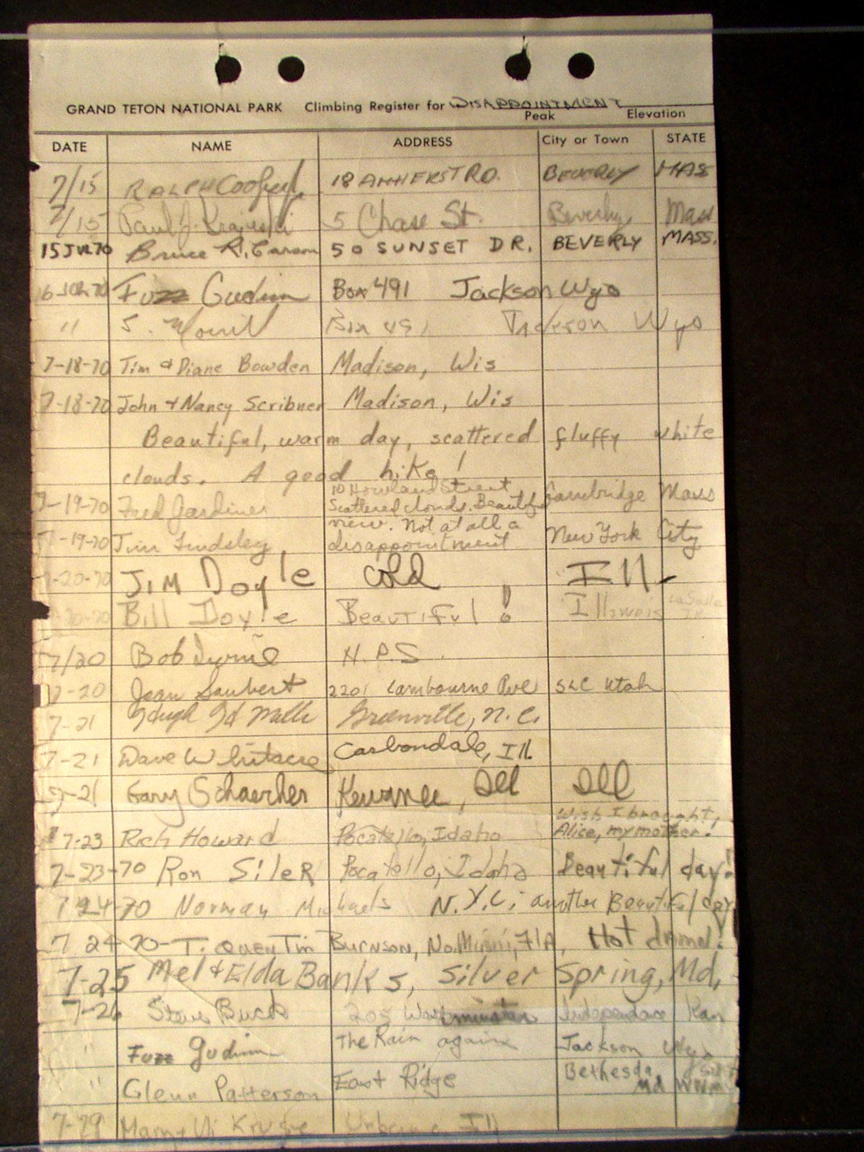 GRAND TETON NATIONAL PARK Climbing Register for DISAPPOINTMENT
Peak Elevation
DATE NAME ADDRESS City or Town STATE
7/15 RALPH 18 AMHERST RD. BEVERLY MAS
7/15 Paul J. 5 Chase St. Beverly, Mass
15 JUL 70 Bruce R. Carson 50 SUNSET DR. BEVERLY MASS.
16 JUL 70 Fuzz Gudim Box 491 Jackson Wyo
" S. Box 491 Jackson Wyo
7-18-70 Tim & Diane Bowden Madison, Wis
7-18-70 John & Nancy Scribner Madison, Wis
Beautiful, warm day, scattered fluffy white
clouds. A good hike!
7-19-70 Fred Gardiner 10 Howland Street Cambridge Mass
Scattered clouds. Beautiful
view. Not at all a
7-19-70 Jim disappointment New York City
7-20-70 JIM Doyle cold Ill.
7-20-70 Bill Doyle Beautiful! Illinois LaSalle Ill
7/20 Bob Irvine N.P.S.
7-20 Joan Saubert 2201 Lambourne Ave SLC Utah
7-21 Hugh Greenville, N.C.
7-21 Dave Whitacre Carbondale, Ill
7-21 Gary Schaecher Kewanee, Ill Ill
Wish I brought,
7-23 Rich Howard Pocatello, Idaho Alice, my mother!
7-23-70 Ron Siler Pocatello, Idaho Beautiful day!
7-24-70 Norman Michaels N.Y.C; another Beautiful day
7 24-70-T. Quentin Burnson, No. Miami, FlA, Hot
7-25 Mel & Elda Banks, Silver Spring, Md.
7-26 Steve 205 Westminster Independence Kan
" Fuzz Gudim The Rain again Jackson Wyo
" Glenn Patterson East Ridge Bethesda, Md
7-29 Urbana Ill